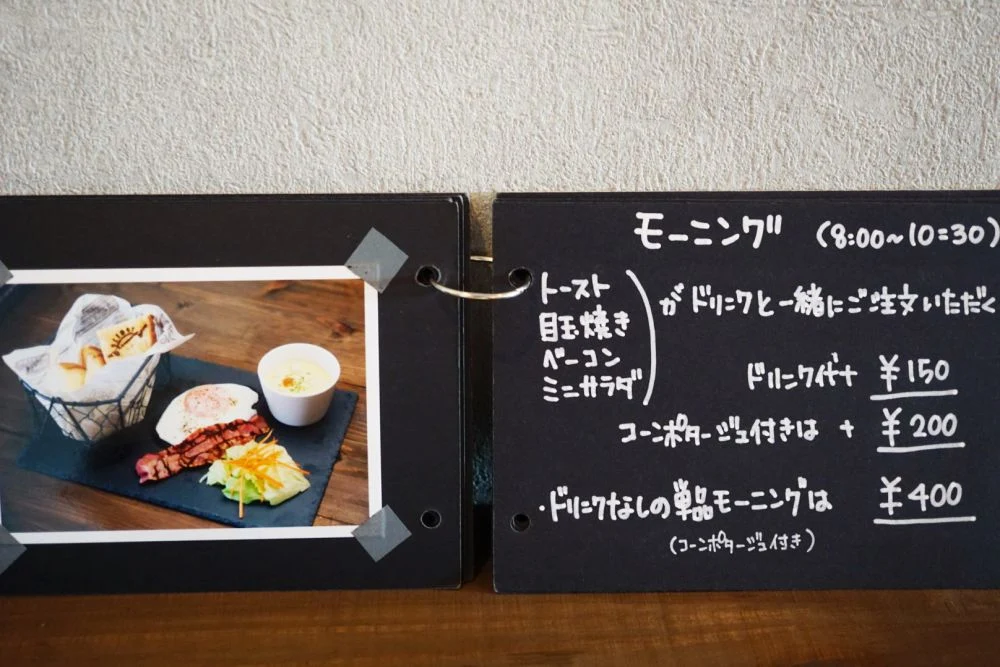 モーニング (8:00~10:30)
トースト
目玉焼き
ベーコン
ミニサラダ
がドリンクと一緒にご注文いただく
ドリンク代+ ¥150
コーンポタージュ付きは + ¥200
・ドリンクなしの単品モーニングは ¥400
(コーンポタージュ付き)